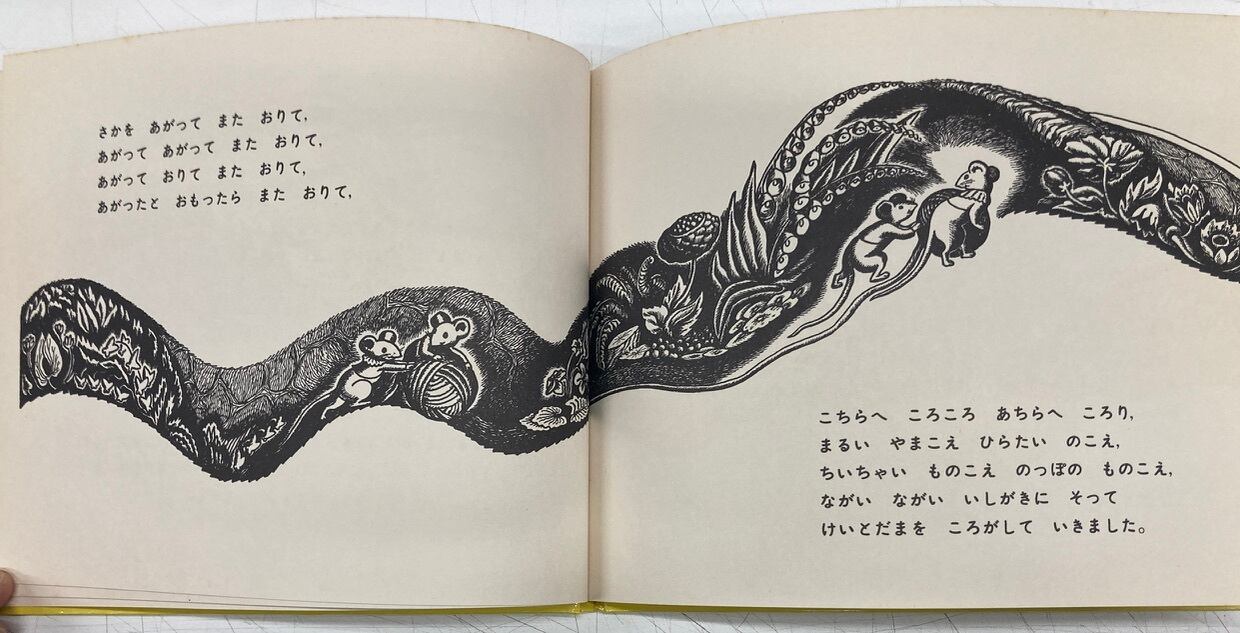 さかを　あがって　また　おりて,
あがって　あがって　また　おりて,
あがって　おりて　また　おりて,
あがったと　おもったら　また　おりて,
こちらへ　ころころ　あちらへ　ころり,
まるい　やまこえ　ひらたい　のこえ,
ちいちゃい　ものこえ　のっぽの　ものこえ,
ながい　ながい　いしがきに　そって
けいとだまを　ころがして　いきました。